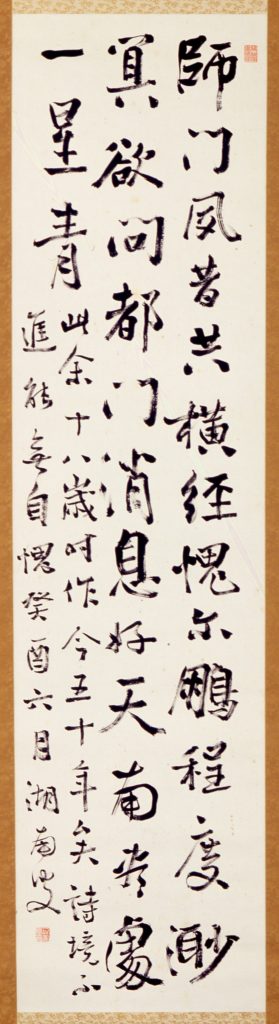 師門夙昔共橫經愧尔鵬程度渺
冥欲問都門消息好天南處
一星青
此余十八歲时作今五十年矣詩境不
進能無自愧癸酉六月湖南叟